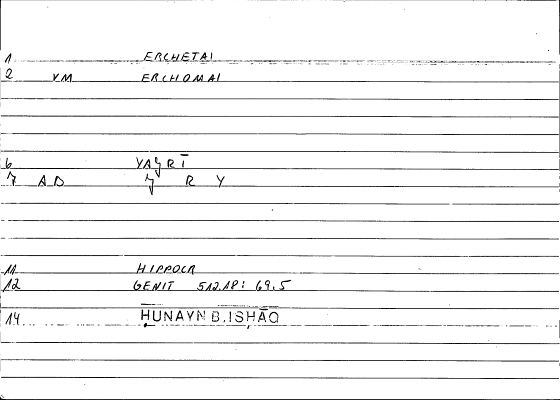 1 ERCHETAI
2 VM ERCHOMAI
6 YAǦRĪ
7 AD Ǧ R Y
11 HIPPOCR
12 GENIT 512.18: 69.5
14 ḤUNAYN B. ISḤĀQ